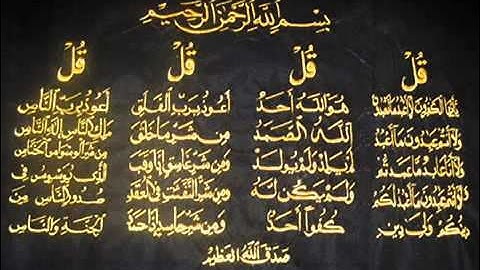 بسم الله الرحمن الرحيم
قل
يأيها الكفرون لا أعبد ما تعبدون
ولا أنتم عبدون ما أعبد
ولا أنا عابد ما عبدتم
ولا أنتم عبدون ما أعبد لكم
دينكم ولي دين
قل
هو الله أحد
الله الصمد
لم يلد ولم يولد
ولم يكن له
كفوا أحد
قل
أعوذ برب الفلق
من شر ما خلق
ومن شر غاسق إذا وقب
ومن شر النفثت في العقد
ومن شر حاسد إذا حسد
قل
أعوذ برب الناس
ملك الناس إله الناس
من شر الوسواس الخناس
الذي يوسوس في
صدور الناس من
الجنة والناس
صدق الله العظيم